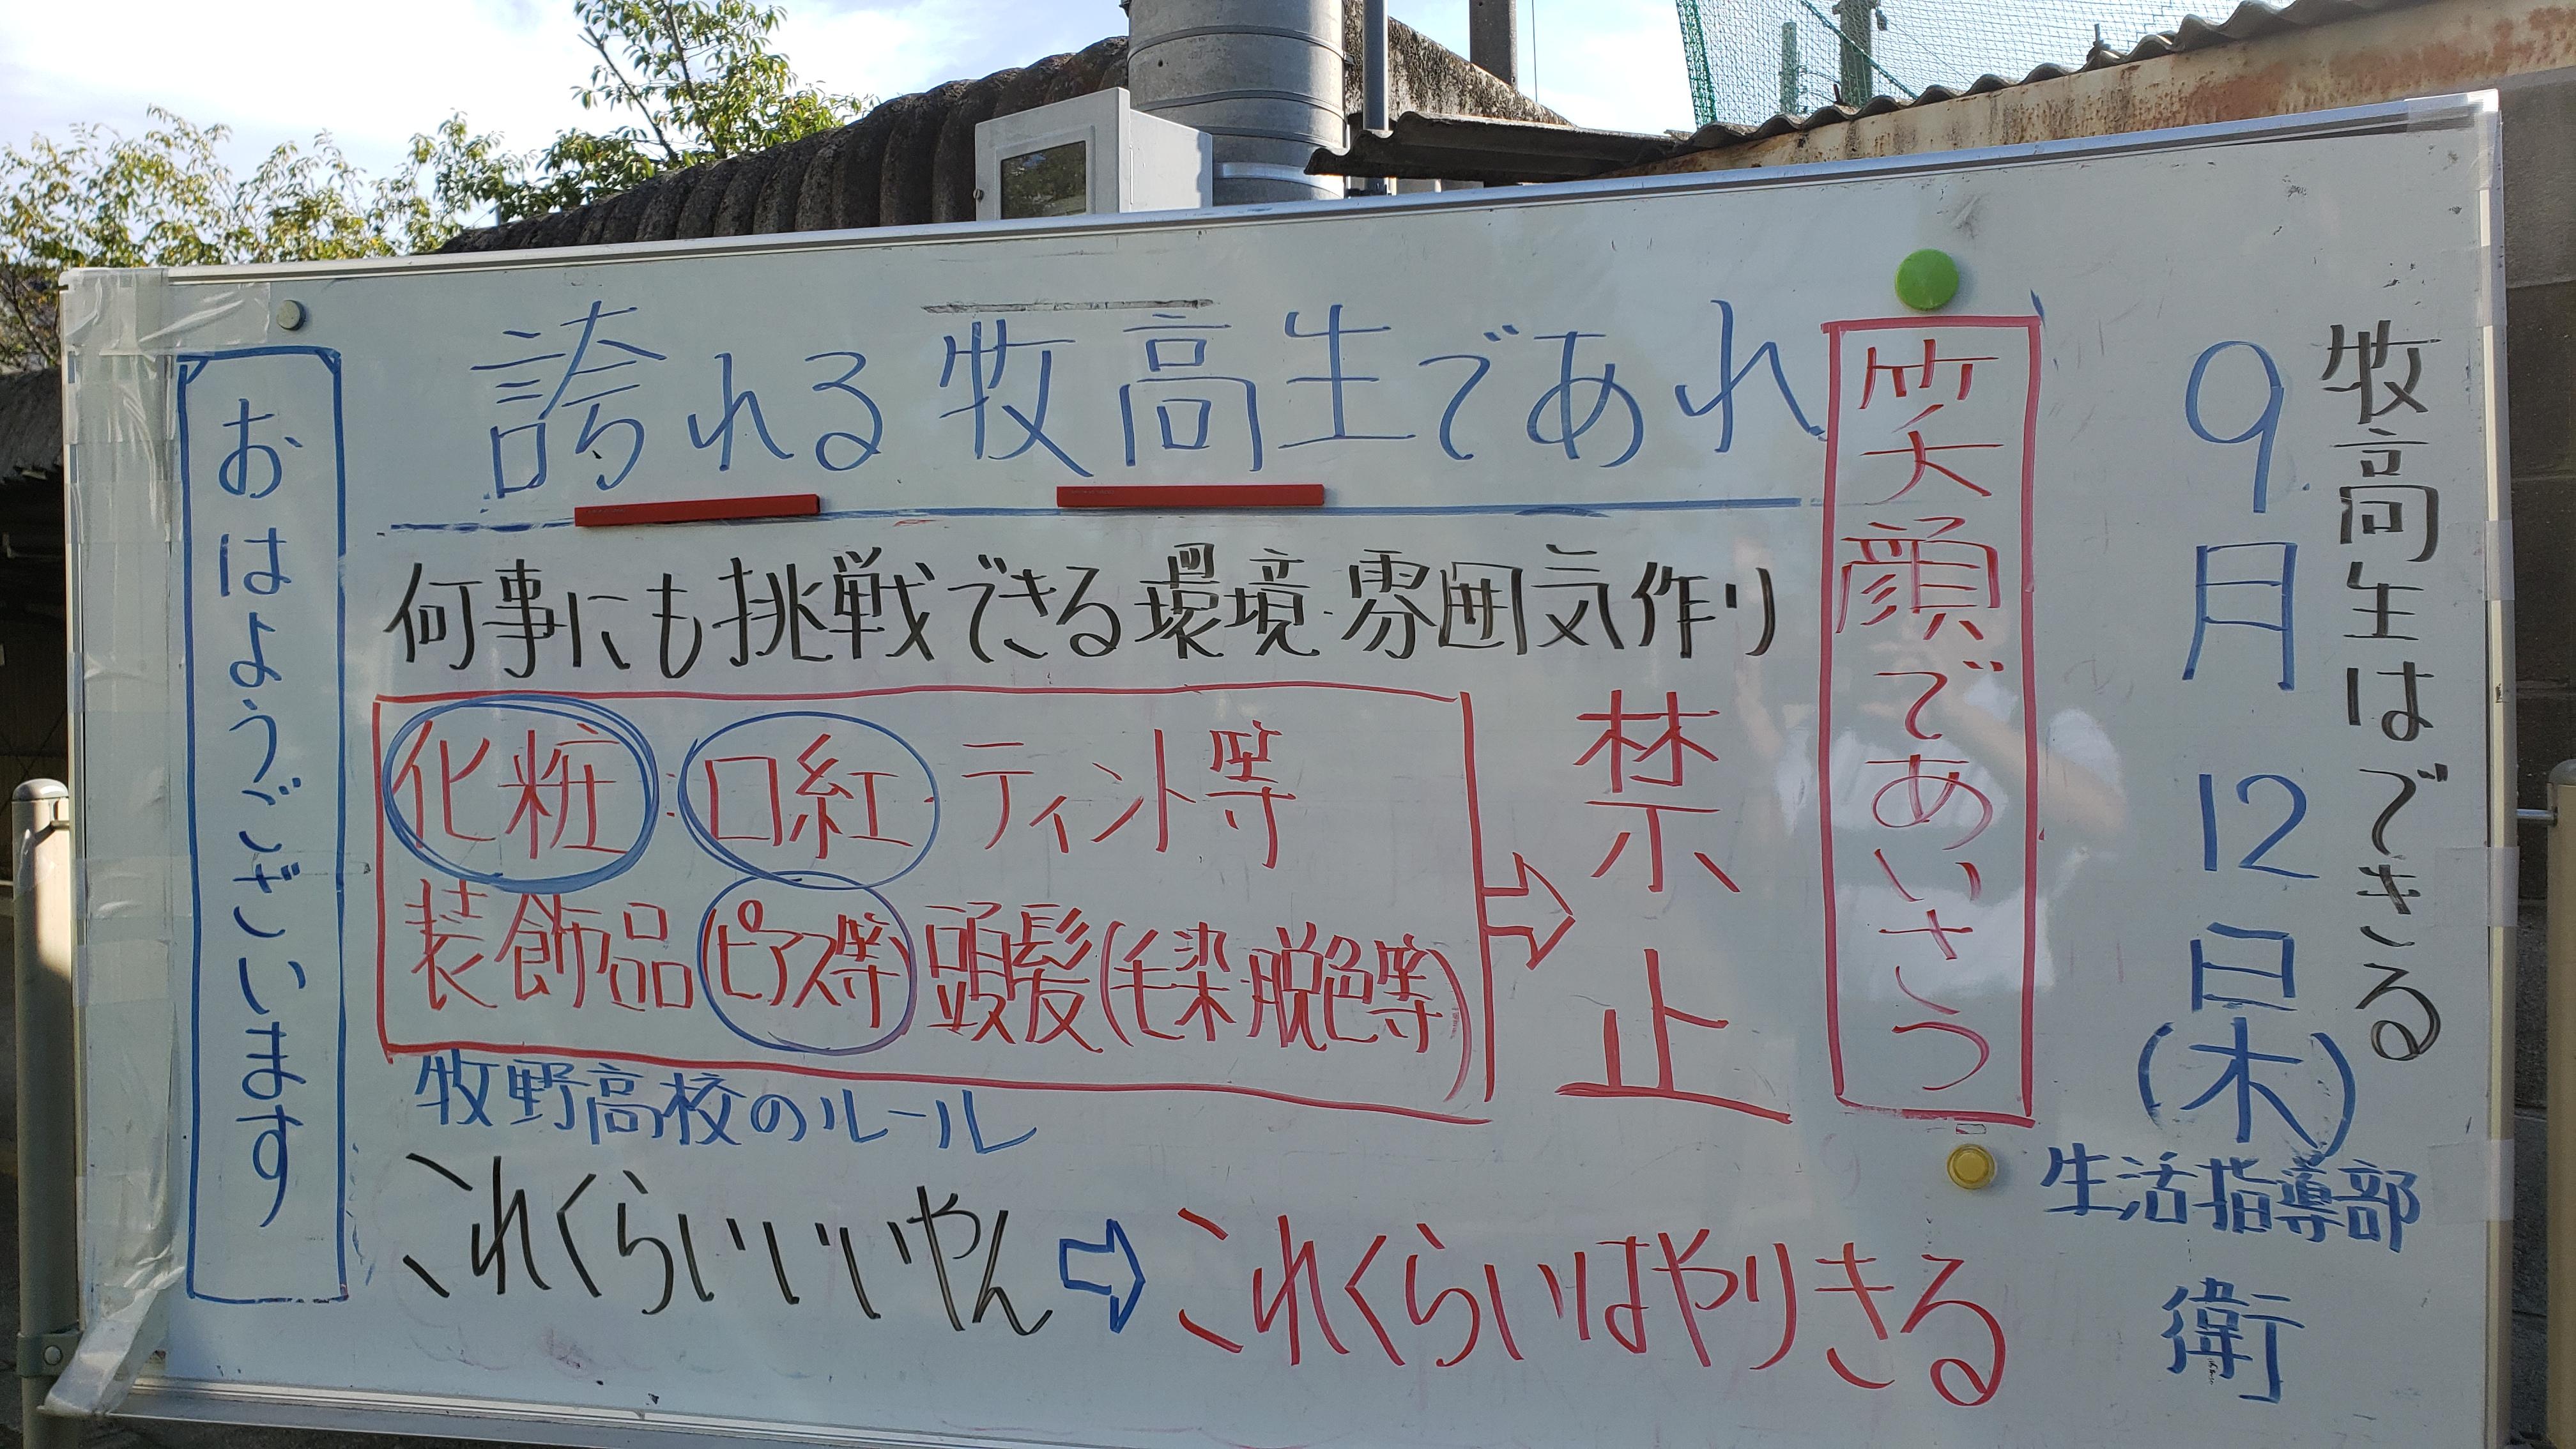 牧高生はできる
9月12日(木)
生活指導部
衛
笑顔であいさつ
誇れる牧高生であれ
何事にも挑戦できる環境・雰囲気作り
化粧・口紅・ティント等
装飾品(ピアス等)頭髪(毛染・脱色等)
⇨禁止
牧野高校のルール
これくらいいいやん⇨これくらいはやりきる
おはようございます